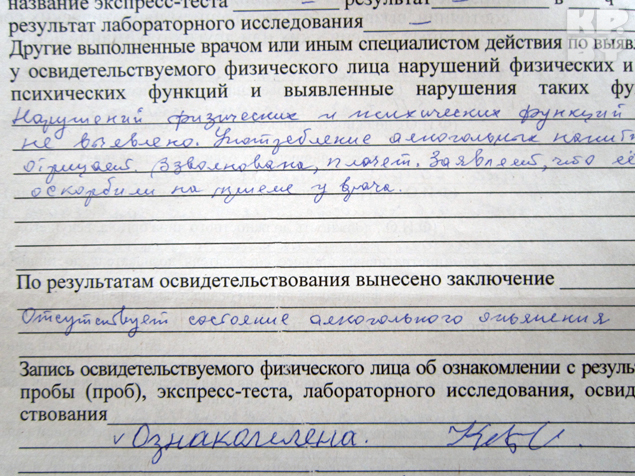 название экспресс-теста – результат – в ч
результат лабораторного исследования –
Другие выполненные врачом или иным специалистом действия по выявл
у освидетельствуемого физического лица нарушений физических и
психических функций и выявленные нарушения таких фу
Нарушений физических и психических функций
не выявлено. Употребление алкогольных напит
отрицает. Взволнована, плачет. Заявляет, что её
оскорбили на приеме у врача.
По результатам освидетельствования вынесено заключение
Отсутствует состояние алкогольного опьянения
Запись освидетельствуемого физического лица об ознакомлении с резуль
пробы (проб), экспресс-теста, лабораторного исследования, освид
ствования
v Ознакомлена.
KP